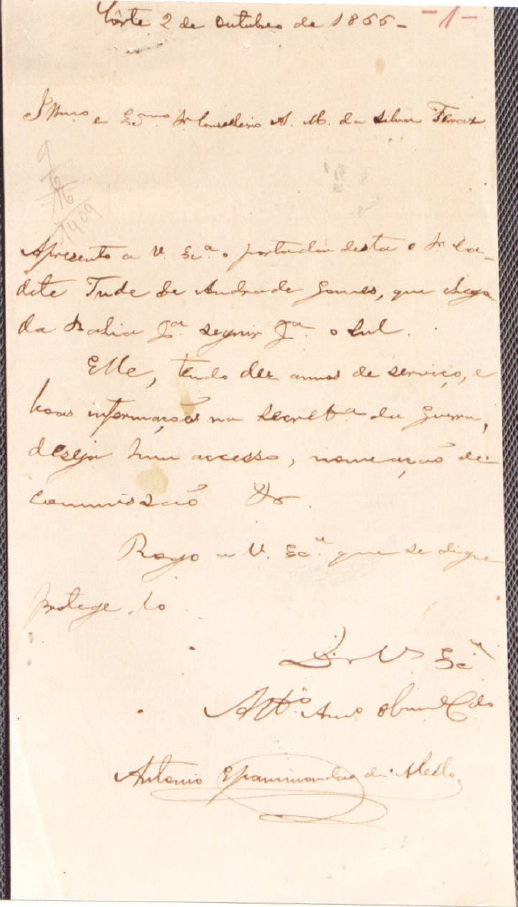 Côrte 2 de Outubro de 1866 - - 1 -
Illmo e Exmo Sr Conselheiro A. M. da Silva Ferraz
9
16
1409
Apresento a V. Exa o portador desta o Sr Ca-
dete Tude de Andrade Gomes, que chega
da Bahia pa. seguir pa o Sul.
Elle, tendo dez annos de serviço, e
boas informações na Secreta da Guerra,
deseja hum accesso, nomeação de
commissão &
Rogo a V. Exa que se digne
protege-lo
De V Exa
Atto Amo Obrmo Cdo
Antonio Epaminondas de Mello